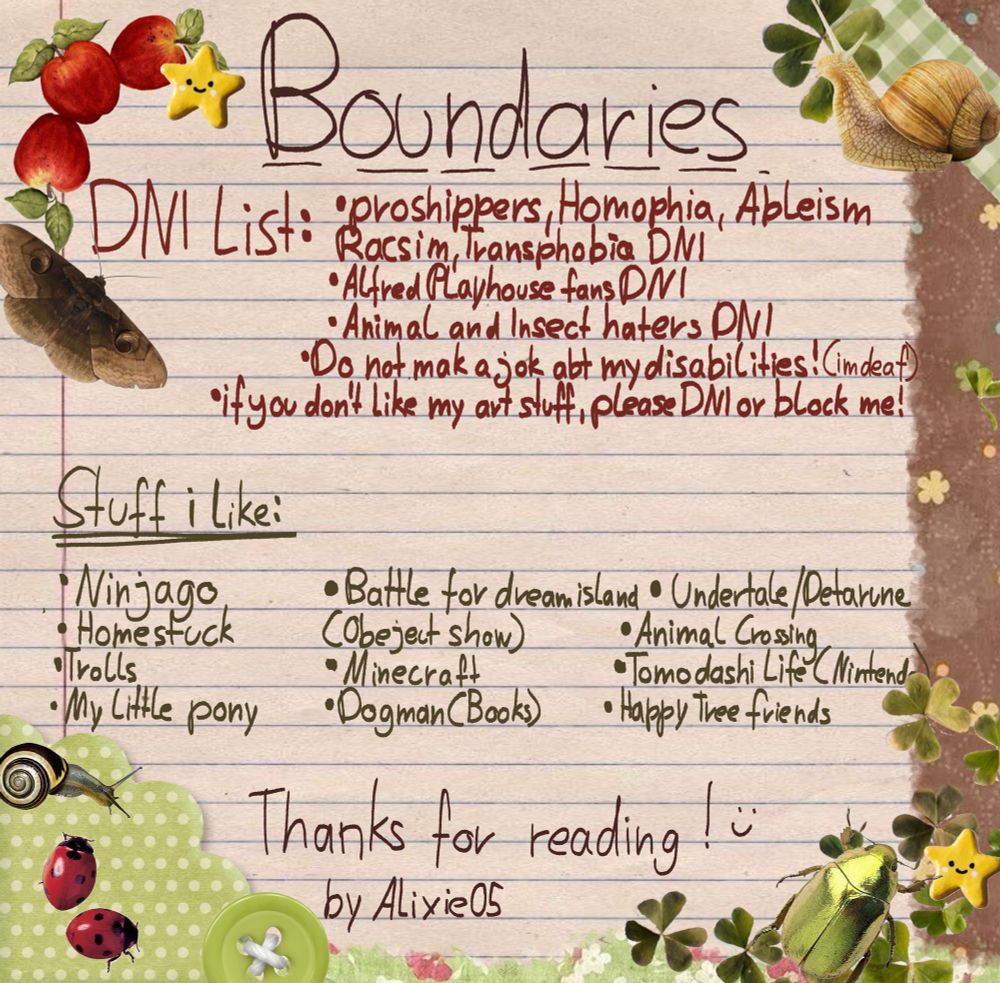 Boundaries
DNI List: •proshippers, Homophia, Ableism
Racsim, Transphobia DNI
•Alfred Playhouse fans DNI
•Animal and Insect haters DNI
•Do not mak a jok abt my disabilities! (im deaf)
•if you don't like my art stuff, please DNI or block me!
Stuff i like:
•Ninjago •Battle for dream island •Undertale/Detarune
•Homestuck (Obeject show) •Animal Crossing
•Trolls •Minecraft •Tomodashi Life (Nintendo
•My Little pony •Dogman (Books) •Happy Tree friends
Thanks for reading! :)
by Alixie05